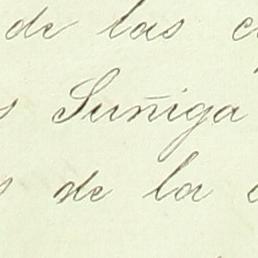 de las
Suñiga
de la